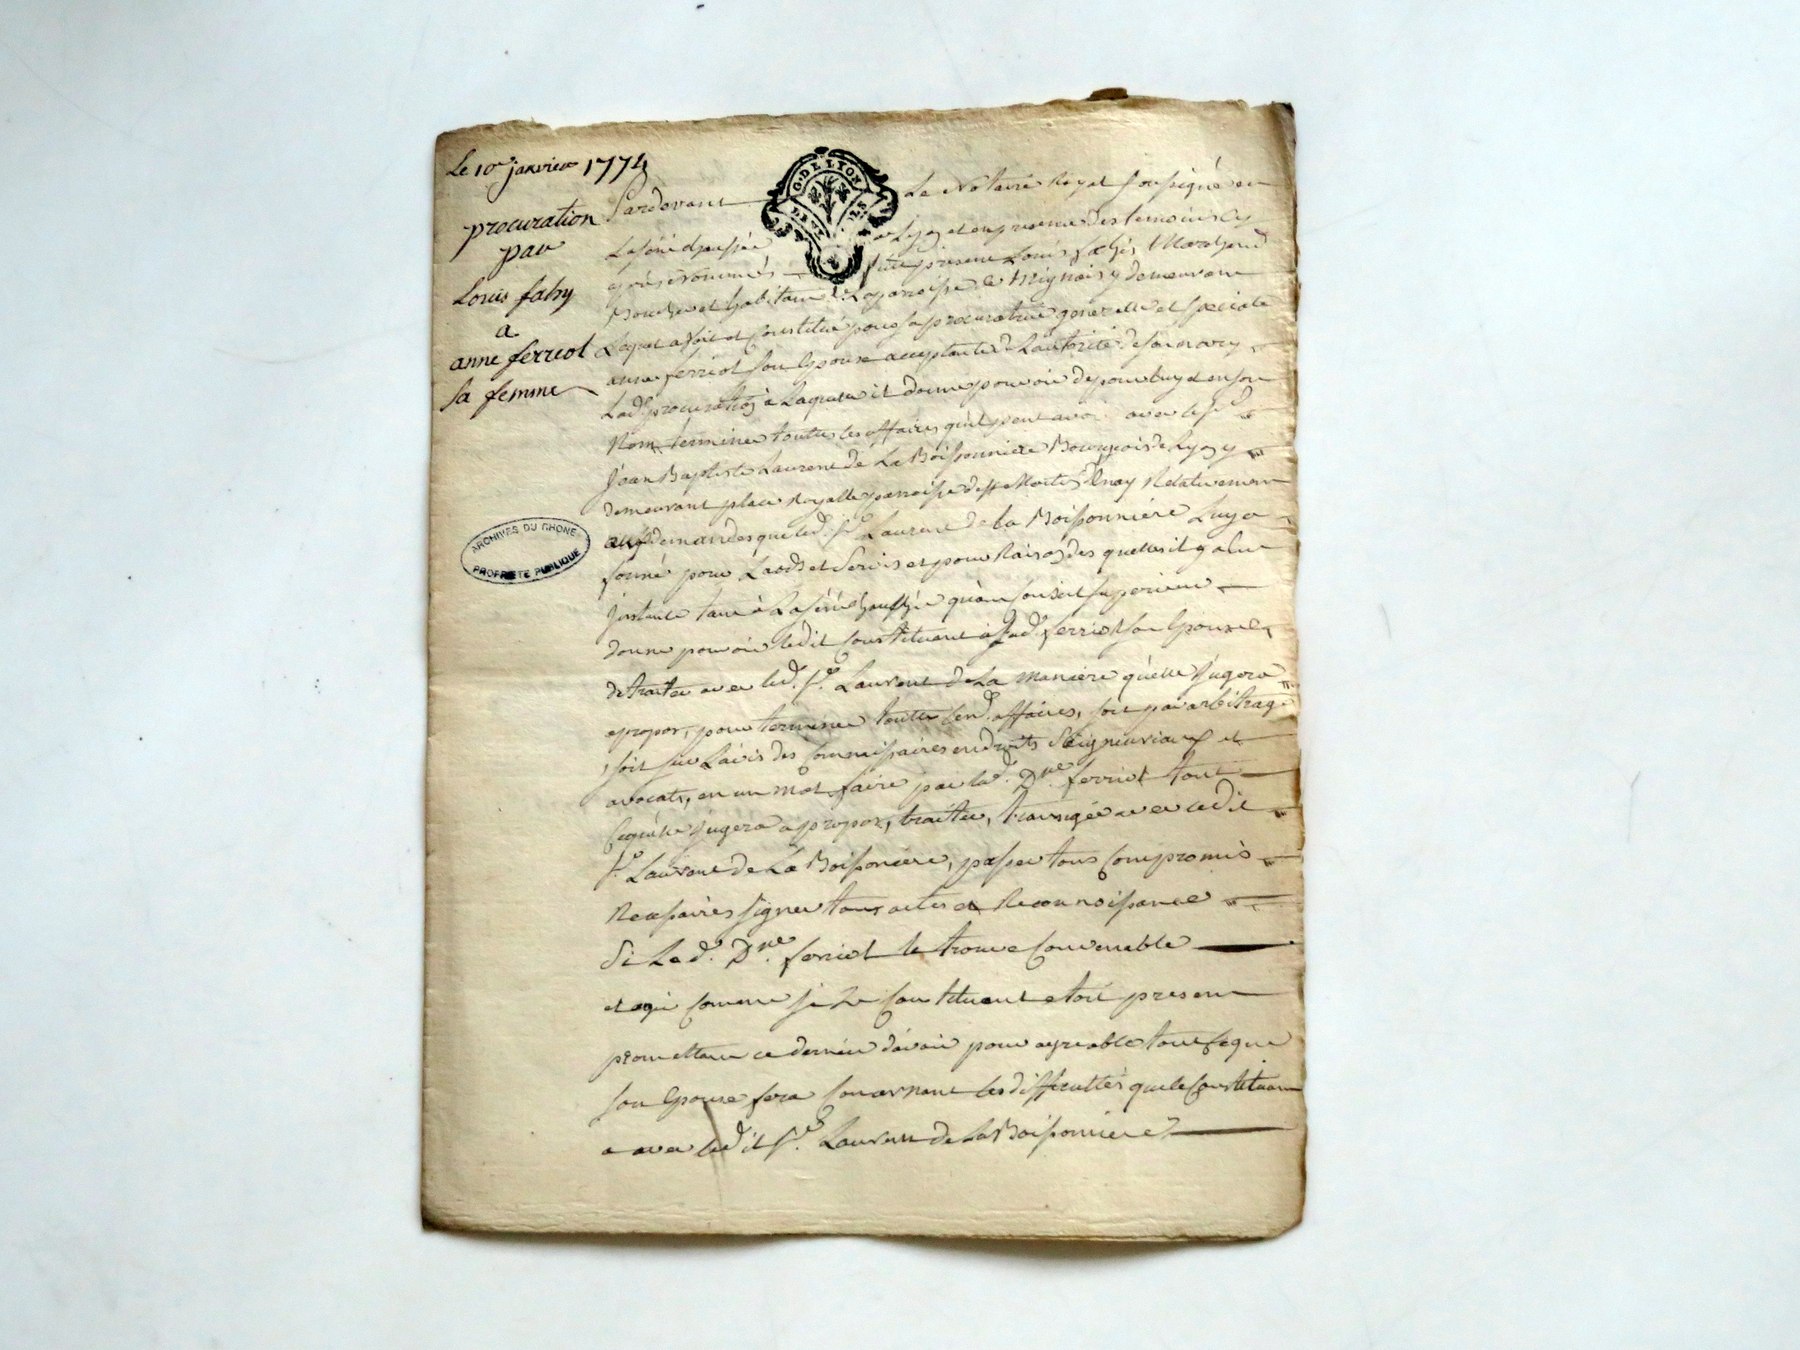 Le 10e janvier 1774
procuration
par
Louis fahy
a
anne ferriol
sa femme
G. DE LYON
DEUX
ARCHIVES DU RHONE
PROPRIETE PUBLIQUE
Pardevant Le Notaire Royal soussigné en
La sénéchaussée de Lyon et en presence des temoins cy
après nommés fut present Louis Marchand
et habitant de La paroisse de y demeurant
Lequel a fait et constitué pour sa procuratrice generalle et speciale
anne ferriol son Epouse acceptante de Lautorité de son mary
Lad. procuration à Laquelle il donne pouvoir de pour luy et en son
Nom terminer toutes les affaires qu'il peut avoir avec le sr.
Jean Baptiste Laurent de La Boissonniere Bourgeois de Lyon y
demeurant place Royalle paroisse de st Martin Dnay Relativement
aux demandes que led. sr. Laurent de la Boissonniere Luy a
formé pour Laods et Servis et pour Raison des quelles il y a eu
Instance tant à La sénéchaussée qu'au Conseil superieur
donne pouvoir ledit Constituant à Lad. ferriol son Epouse
de traiter avec led. sr. Laurent de La maniere qu'elle Jugera
apropos, pour terminer toutes lesd. affaires, soit par arbitrage
soit sur Lavis des Commissaires en droits Seigneuriaux et
avocats, en un mot faire par lad. Dne. ferriol tout
Cequ'elle Jugera apropos, traiter, transiger avec ledit
sr. Laurent de La Boissoniere, passer tous Compromis
Necessaires signer tous actes et Reconnoissance
Si Lad. Dne. ferriol le trouve Convenable
et agir comme si Le Constituant etoit present
promettant ce dernier d'avoir pour agreable tout ceque
son Epouse fera Concernant les difficultés que le Constituant
a avec ledit sr. Laurent de La Boissonniere